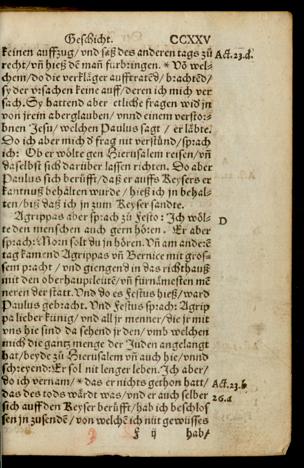 Geschicht. CCXXV
keinen auffzug/ vnd saß des anderen tags zů
recht/ vñ hieß dē man̄ furbringen. * Vō wel-
chem/ do die verkläger aufftratēd/ brachtēd/
sy der vrsachen keine auff/ deren ich mich ver
sach. Sy hattend aber etliche fragen wid jn
von jrem aberglauben/ vnnd einem verstor-
bnen Jesu/ welchen Paulus sagt/ er läbte.
Do ich aber mich d frag nit verstůnd/ sprach
ich: Ob er wölte gen Hierusalem reisen/ vñ
daselbst sich darüber lassen richten. Do aber
Paulus sich berüfft/ daß er auffs Keysers er
kantnuß behalten wurde/ hieß ich jn behal-
ten/ biß daß ich jn zum Keyser sandte.
Agrippas aber sprach zů Festo: Ich wöl-
te den menschen auch gern hören. Er aber
sprach: Morn solt du jn hören. Vñ am anderē
tag kamend Agrippas vñ Bernice mit gros-
sem pracht/ vnd giengend in das richthauß
mit den oberhauptleutē/ vñ fürnämesten mē
neren der statt. Vnd do es Festus hieß/ ward
Paulus gebracht. Vnd Festus sprach: Agrip
pa lieber künig/ vnd all jr menner/ die jr mit
vns hie sind da sehend jr den/ vmb welchen
mich die gantz menge der Juden angelangt
hat/ beyde zů Hierusalem vñ auch hie/ vnnd
schreyend: Er sol nit lenger leben. Ich aber/
do ich vernam/ * das er nichts gethon hatt/
das des tods wärdt was/ vnd er auch selber
sich auff den Keyser berüfft/ hab ich beschlos
sen jn zusendē/ von welchē ich nüt gewüsses
f ij hab/
Act. 23.d.
D
Act. 23.b
26.a